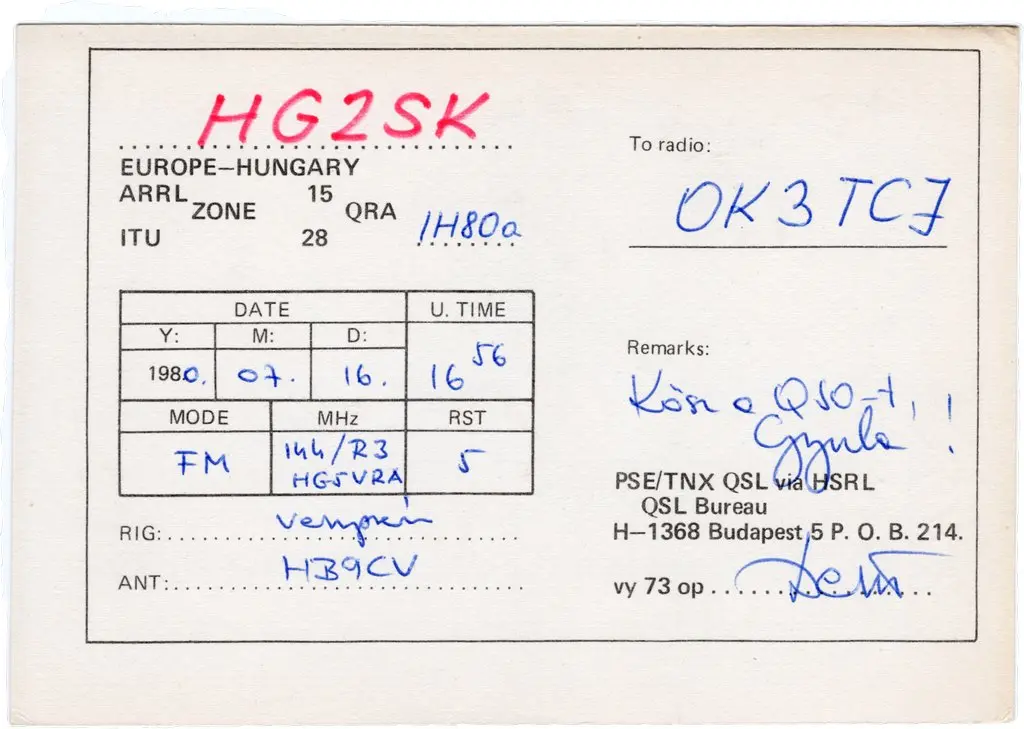 HG2SK
EUROPE–HUNGARY
ARRL ZONE 15 QRA
ITU 28 IH80a
To radio:
OK3TCJ
DATE U. TIME
Y: M: D:
1980. 07. 16. 16 56
MODE MHz RST
FM 144/R3 5
HG5VRA
RIG:
ANT: HB9CV
Remarks:
Kösz a QSO-t, !
Gyula !
PSE/TNX QSL via HSRL
QSL Bureau
H–1368 Budapest 5 P. O. B. 214.
vy 73 op